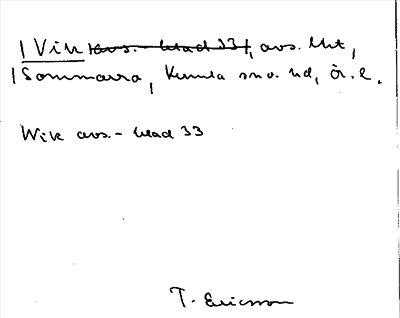 |Vik avs. blad 33, avs. lht,
|Sommarra, Kumla snv. hd, Ör. l.
Wik avs. - blad 33
T. Ericsson